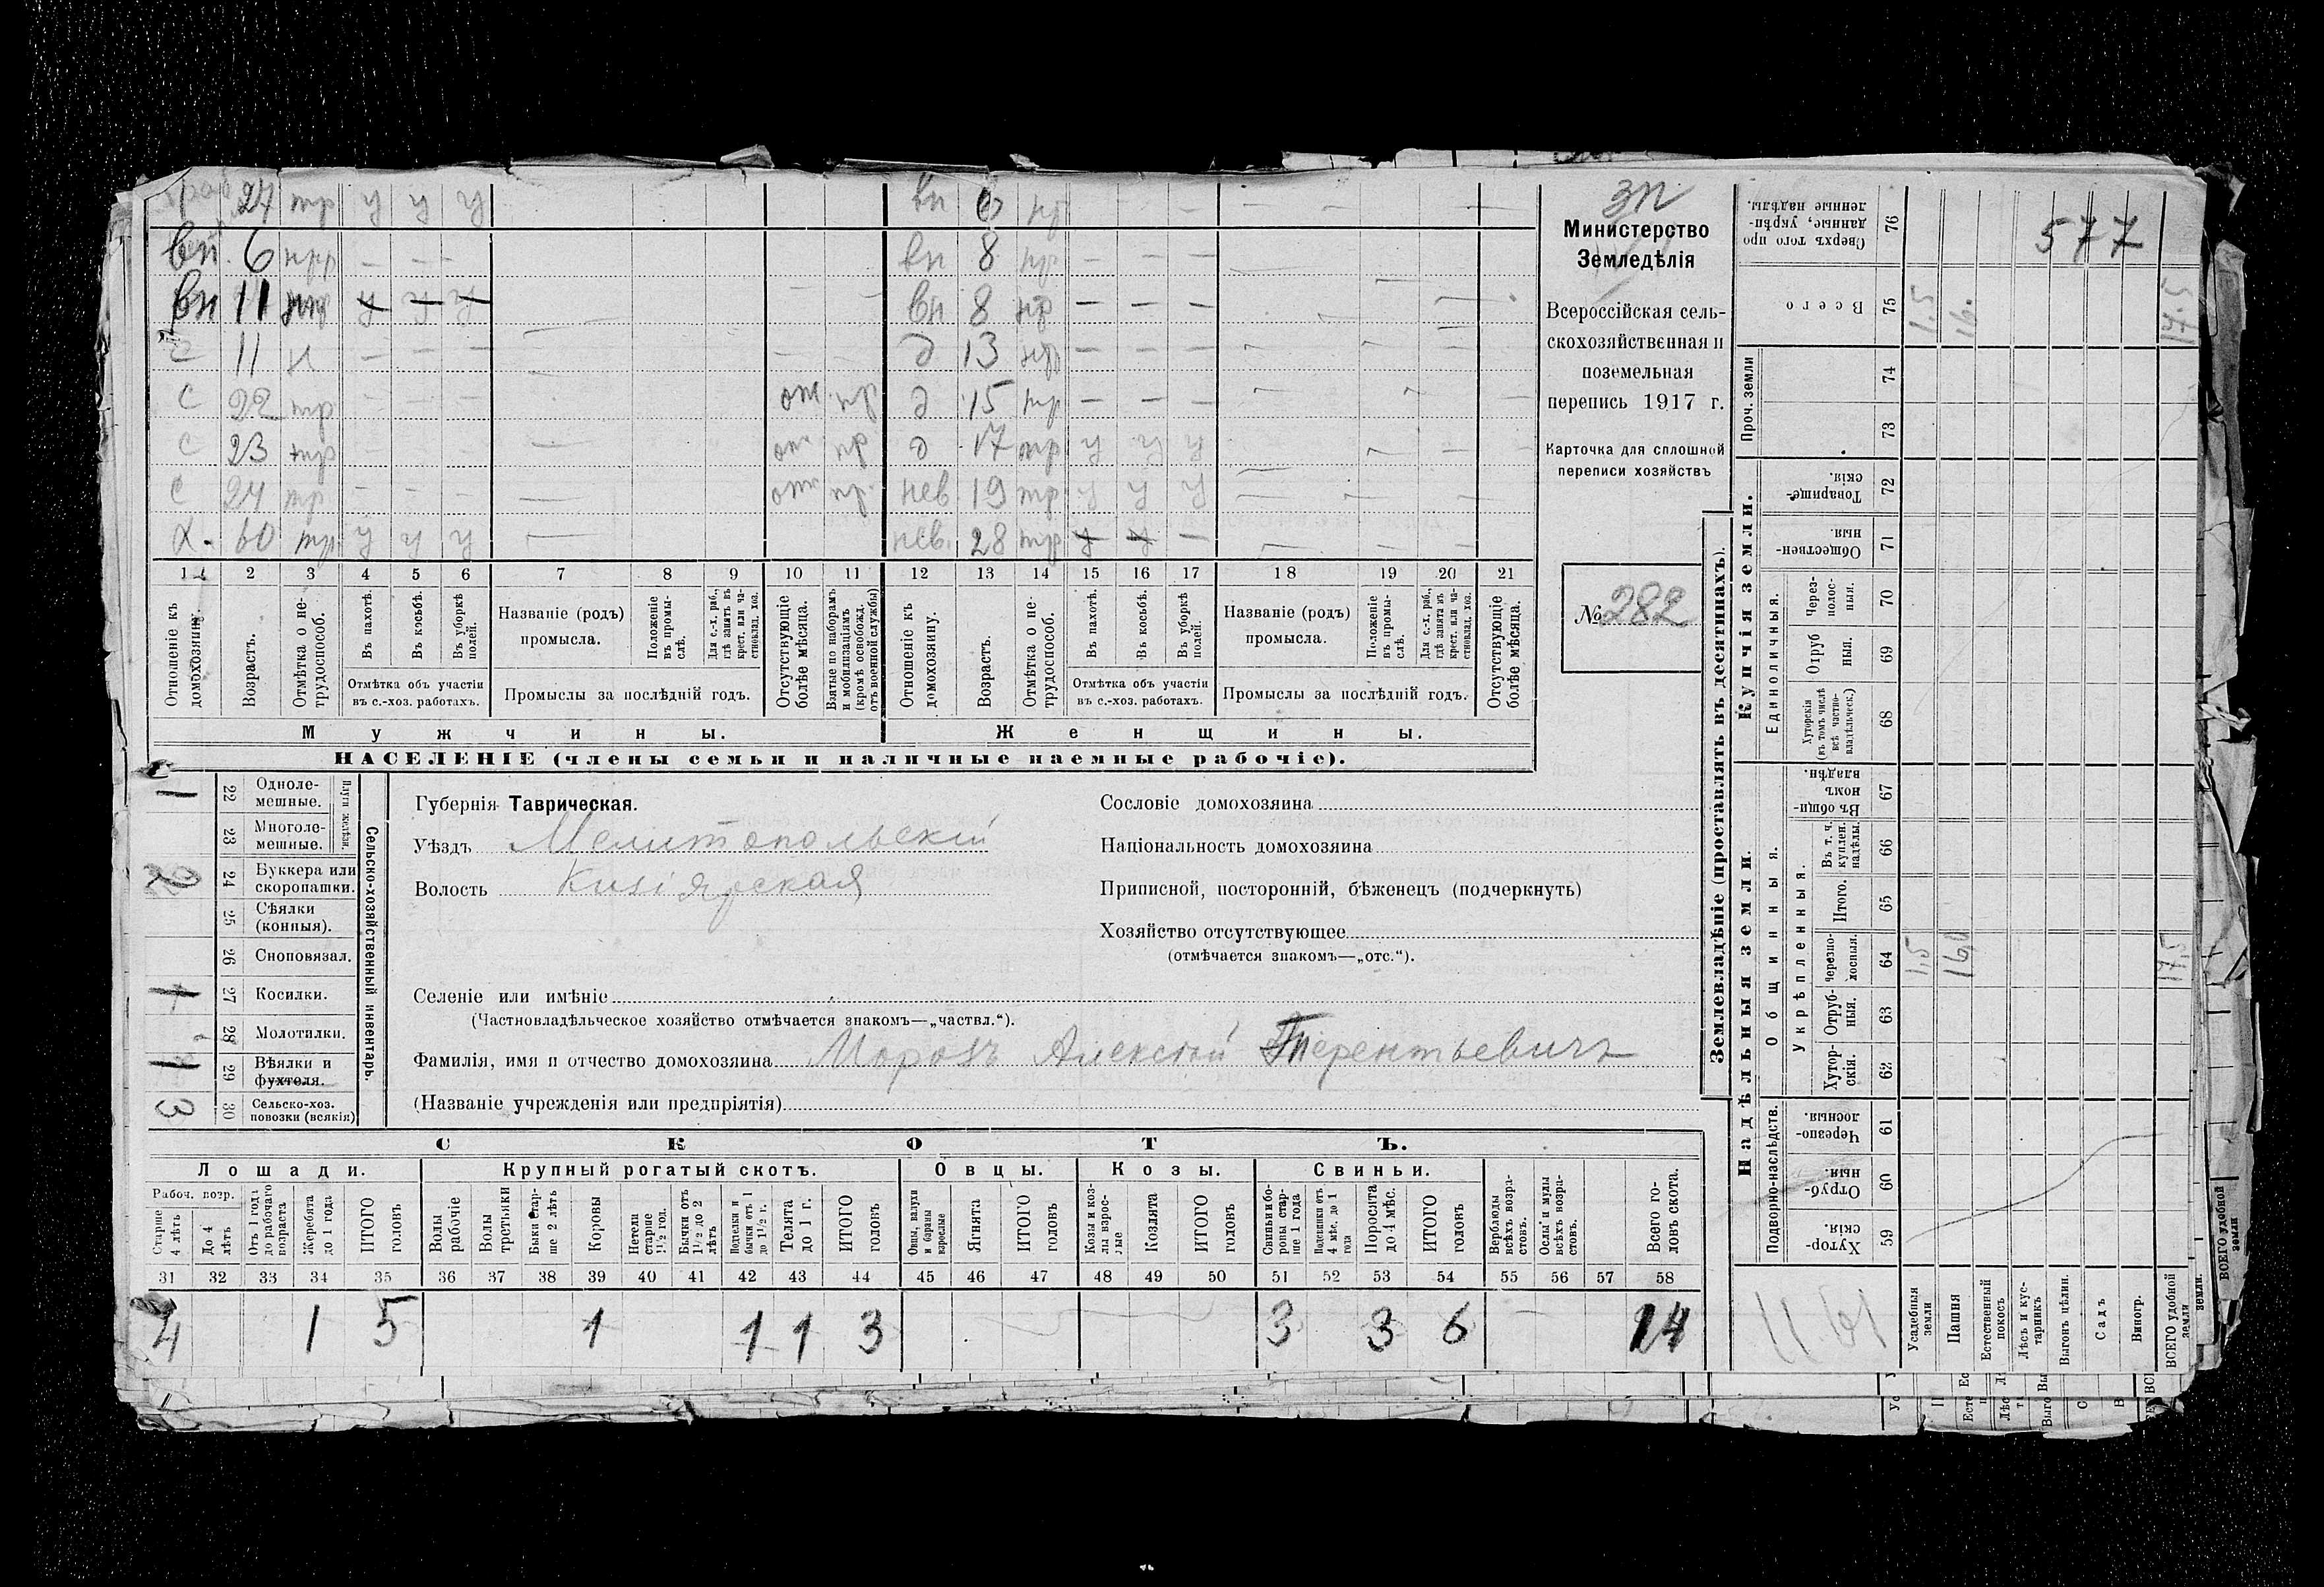 24 тр у у у вн 6 нр
вн 6 нтр — — — вн 8 нр — — —
вн 11 у у у вн 8 нр — — —
с 11 н — — — д 13 нтр — — —
с 22 тр — — — от пр д 15 тр — — —
с 23 тр — — — от пр д 17 тр у у у
с 24 тр — — — от пр. нев 19 тр у у у
х. 60 тр у у у нев. 28 тр у у —
1 2 3 4 5 6 7 8 9 10 11 12 13 14 15 16 17 18 19 20 21
Отношеніе къ домохозяину.
Возрастъ.
Отмѣтка о нетрудоспособ.
Въ пахотѣ.
Въ косьбѣ.
Въ уборкѣ полей.
Отмѣтка объ участіи
въ с.-хоз. работахъ.
Названіе (родъ)
промысла.
Положеніе въ промыслѣ.
Для с.-х. раб., гдѣ занятъ въ крест. или частновлад. хоз.
Промыслы за послѣдній годъ.
Отсутствующіе болѣе мѣсяца.
Взятые по наборамъ и мобилизаціямъ (кромѣ освобожд. отъ военной службы)
Отношеніе къ домохозяину.
Возрастъ.
Отмѣтка о нетрудоспособ.
Въ пахотѣ.
Въ косьбѣ.
Въ уборкѣ полей.
Отмѣтка объ участіи
въ с.-хоз. работахъ.
Названіе (родъ)
промысла.
Положеніе въ промыслѣ.
Для с.-х. раб., гдѣ занята въ крест. или частновлад. хоз.
Промыслы за послѣдній годъ.
Отсутствующіе болѣе мѣсяца.
Мужчины. Женщины.
НАСЕЛЕНІЕ (члены семьи и наличные наемные рабочіе).
зп
Министерство
Земледѣлія
Всероссійская сель-
скохозяйственная и
поземельная
перепись 1917 г.
Карточка для сплошной
переписи хозяйствъ
№ 282
1 22 Одноле-
мешные.
23 Многоле-
мешные.
Плуги желѣзн.
2 24 Буккера или
скоропашки.
25 Сѣялки
(конныя).
26 Сноповязал.
1 27 Косилки.
28 Молотилки.
1 29 Вѣялки и
фухтеля.
3 30 Сельско-хоз.
повозки (всякія)
Сельско-хозяйственный инвентарь.
Губернія Таврическая.
Уѣздъ Мелитопольскій
Волость Кизіярская
Сословіе домохозяина
Національность домохозяина
Приписной, посторонній, бѣженецъ (подчеркнуть)
Хозяйство отсутствующее
(отмѣчается знакомъ—„отс.“).
Селеніе или имѣніе
(Частновладѣльческое хозяйство отмѣчается знакомъ—„частвл.“).
Фамилія, имя и отчество домохозяина Морозъ Алексѣй Терентьевичъ
(Названіе учрежденія или предпріятія)
СКОТЪ.
Лошади. Крупный рогатый скотъ. Овцы. Козы. Свиньи.
Рабоч. возр.
Старше 4 лѣтъ
До 4 лѣтъ
Отъ 1 года до рабочаго возраста
Жеребята до 1 года
ИТОГО головъ
Волы рабочіе
Волы третьяки
Быки старше 2 лѣтъ
Коровы
Нетели старше 1 1/2 год.
Бычки отъ 1 1/2 до 2 лѣтъ
Подтелки и бычки отъ 1 до 1 1/2 г.
Телята до 1 г.
ИТОГО головъ
Овцы, валухи и бараны взрослые
Ягнята
ИТОГО головъ
Козы и козлы взрослые
Козлята
ИТОГО головъ
Свиньи боровы старше 1 года
Подсвинки отъ 4 мѣс. до 1 года
Поросята до 4 мѣс.
ИТОГО головъ
Верблюды всѣхъ возрастовъ.
Ослы и мулы всѣхъ возрастовъ.
Всего головъ скота.
31 32 33 34 35 36 37 38 39 40 41 42 43 44 45 46 47 48 49 50 51 52 53 54 55 56 57 58
4 1 5 1 1 1 3 3 3 6 14
Землевладѣніе (проставлять въ десятинахъ).
Купчія земли.
Надѣльныя земли.
Проч. земли
Единоличныя.
Общинныя.
Укрѣпленныя.
Подворно-наслѣдств.
Сверхъ того проданные, укрѣпленные надѣлы. 76 577
Всего 75 1.5 16. 17.5
74
73
Товарищескія. 72
Общественныя. 71
Черезполосныя. 70
Отрубныя. 69
Хуторскія (въ томъ числѣ всѣ частновладѣльческ.) 68
Въ общинномъ владѣн. 67
Въ т. ч. куплен. надѣлы. 66
Итого. 65
Черезполосныя. 64 1.5 16,0 17,5
Отрубныя. 63
Хуторскія. 62
Черезполосныя. 61
Отрубныя. 60
Хуторскія. 59
Усадебныя земли
Пашня
Естественный покосъ
Лѣсъ и кустарникъ
Выгонъ цѣлин.
Садъ
Виногр.
ВСЕГО удобной земли
ВСЕГО удобной земли